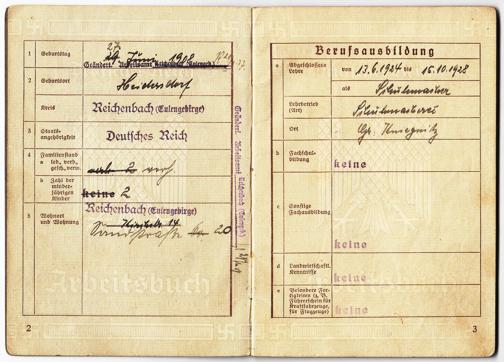 1 Geburtstag
27. Juni 1908
Geändert. Arbeitsamt Reichenbach (Eulengeb.)
2 Geburtsort
Heidersdorf
Kreis
Reichenbach (Eulengebirge)
3 Staats-
angehörigkeit
Deutsches Reich
4 Familienstand
a led., verh.,
gesch., verw.
verh. 2 verh.
b Zahl der
minder-
jährigen
Kinder
keine 2
5 Wohnort
und Wohnung
Reichenbach (Eulengebirge)
14
Sandstraße 20
Geändert. Arbeitsamt Reichenbach (Eulengeb.)
Arbeitsbuch
2
Berufsausbildung
a Abgeschlossene
Lehre
von 13.6.1924 bis 15.10.1928
als
Lehrbetrieb
(Art)
Ort
Gr.
b Fachschul-
bildung
keine
c Sonstige
Fachausbildung
keine
d Landwirtschaftl.
Kenntnisse
keine
e Besondere Fer-
tigkeiten (z. B.
Führerschein für
Kraftfahrzeuge,
für Flugzeuge)
keine
3